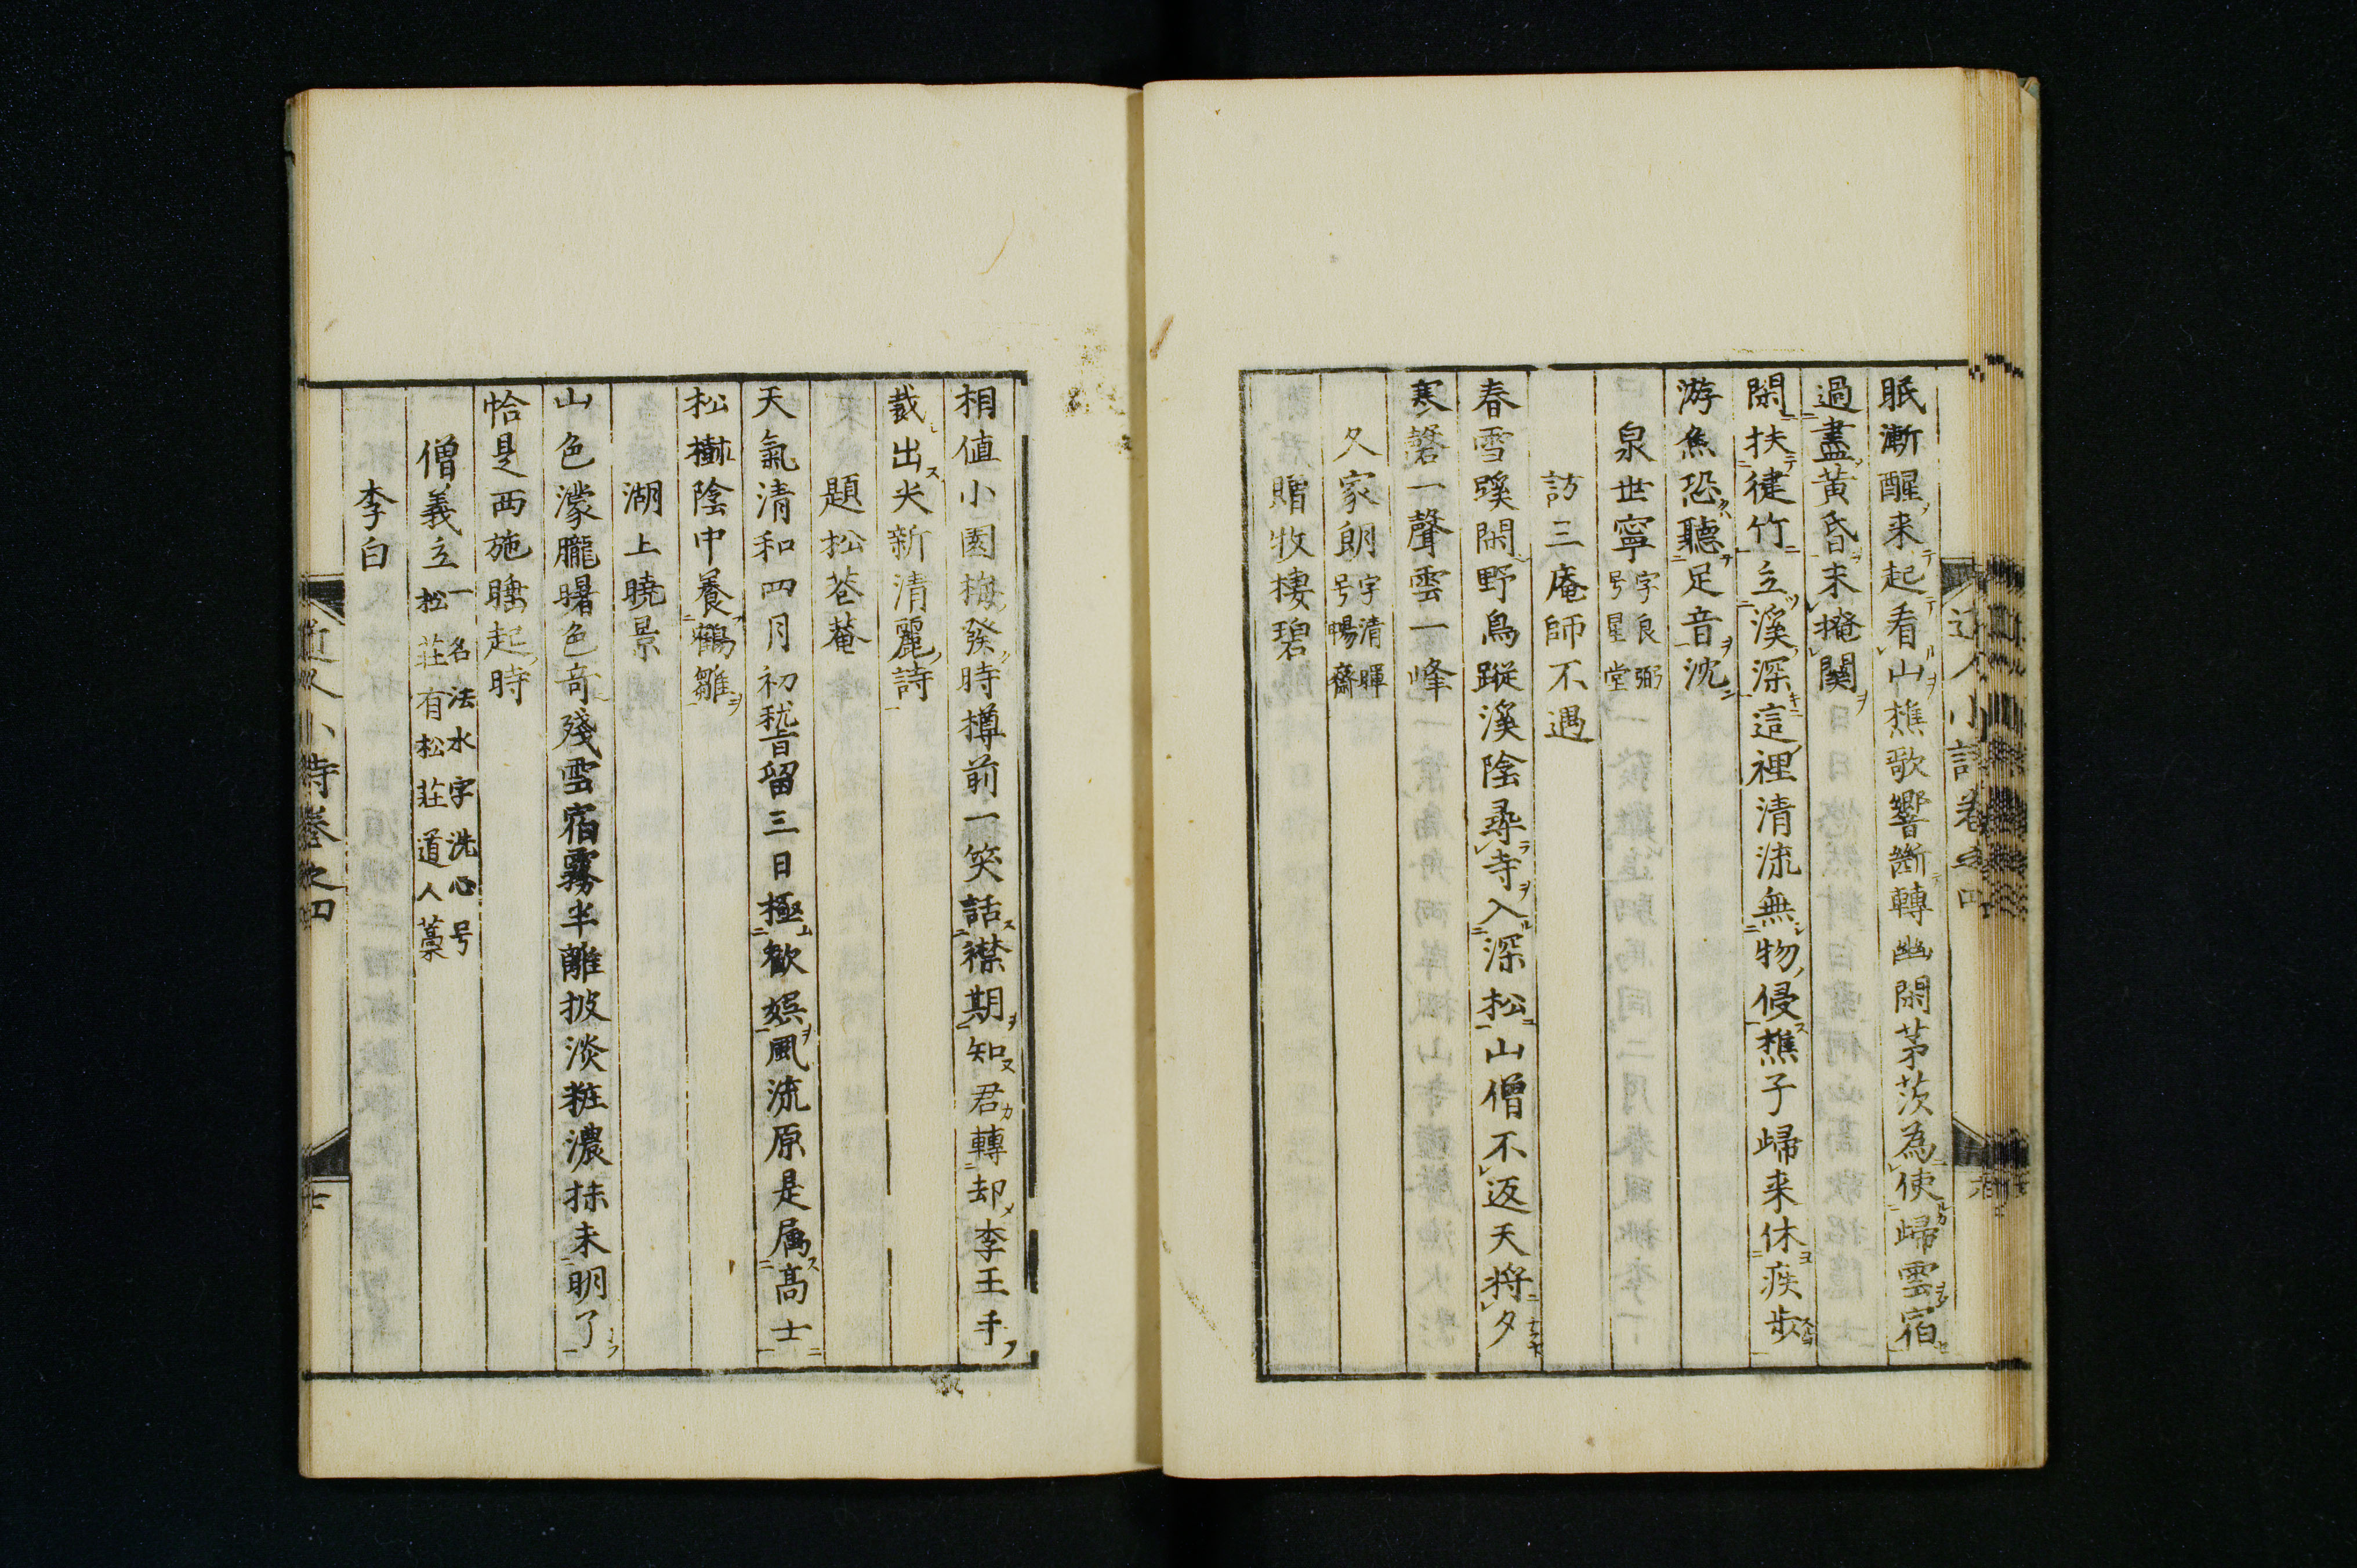 眠漸醒来起看山樵歌響断轉幽閑茅茨為使歸雲宿
過盡黄昏未掩關
閑扶𥾝竹立溪深這裡清流無物侵樵子歸来休疾歩
游魚恐聽足音沈
泉世寧字良弼号星堂
訪三庵師不遇
春雪蹊閑野鳥蹤溪陰尋寺入深松山僧不返天将夕
寒磬一聲雲一峰
久家朗字清暉号暢齋
贈牧棲碧
相値小園梅發時樽前一笑話襟期知君轉却李王手
裁出尖新清麗詩
題松菴
天氣清和四月初嵇留三日極歓娯風流原是属高士
松樹陰中養鶴雛
湖上曉景
山色濛朧曙色竒殘雪宿霧半離披淡粧濃抹未明了
恰是西施睡起時
僧義立一名法水字洗心号松莊有松莊道人藁
李白
小詩巻之四
七